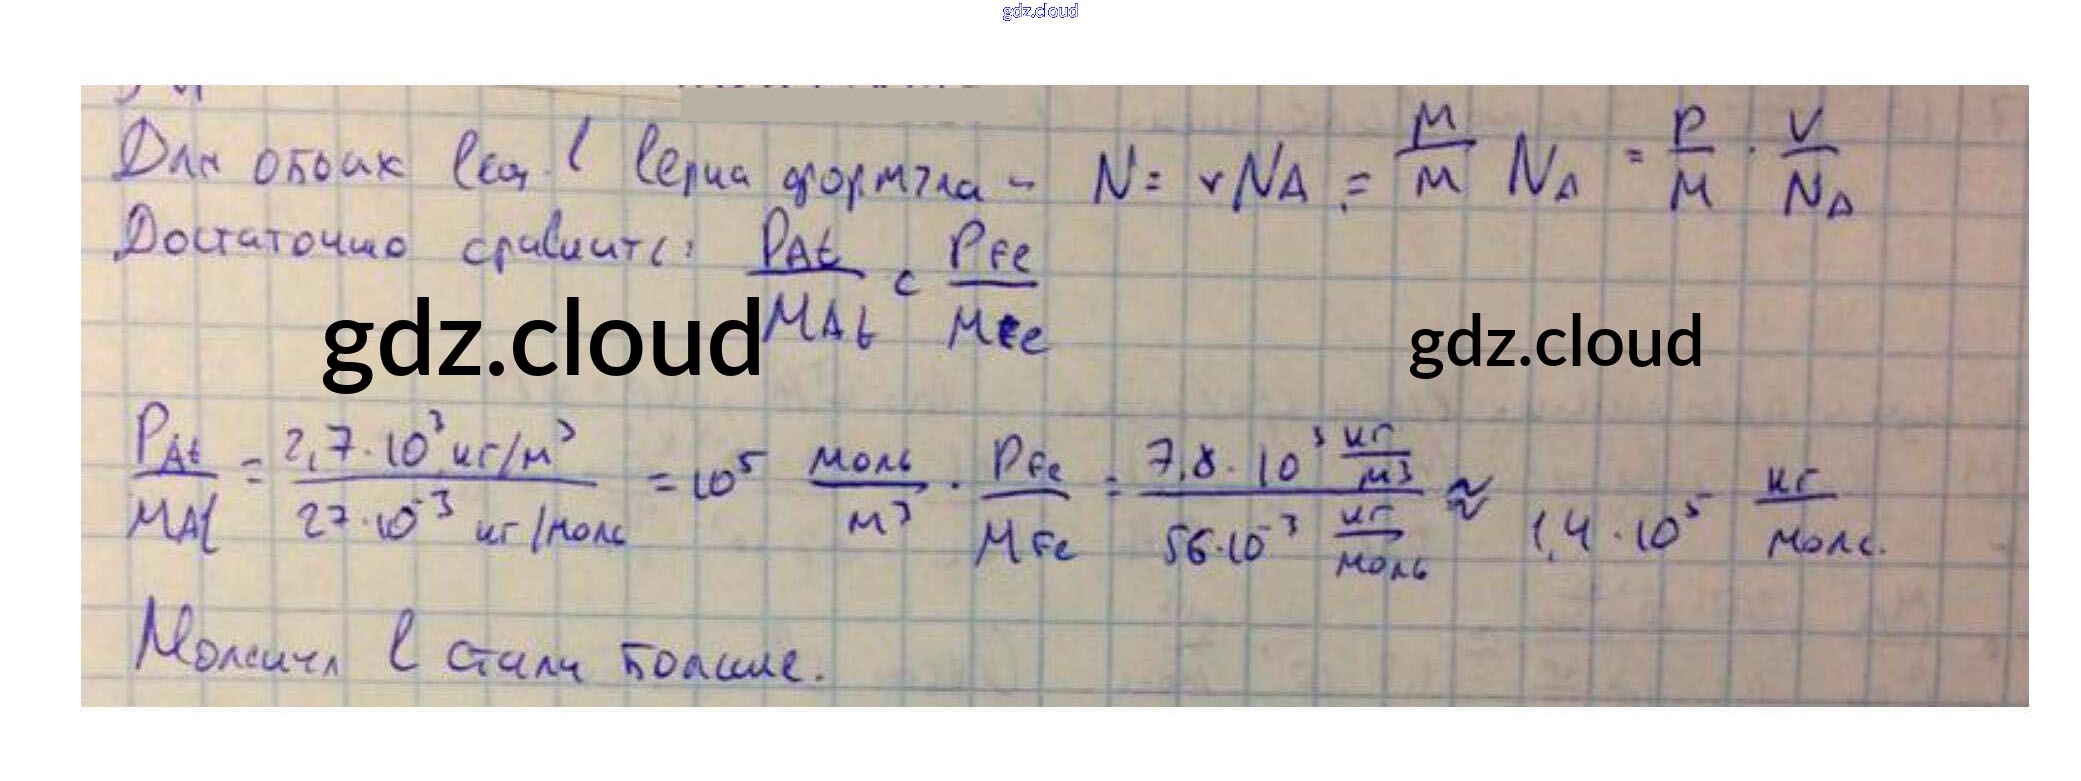 gdz.cloud
Для обоих вещ. в верна формула - N = νN_A = m/M N_A = ρ/M · V/N_A
Достаточно сравнить: ρ_Al/M_Al с ρ_Fe/M_Fe
gdz.cloud gdz.cloud
ρ_Al/M_Al = 2,7·10³ кг/м³ / 27·10⁻³ кг/моль = 10⁵ моль/м³ · ρ_Fe/M_Fe = 7,8·10³ кг/м³ / 56·10⁻³ кг/моль ≈ 1,4·10⁵ кг/моль.
Молекул в стали больше.